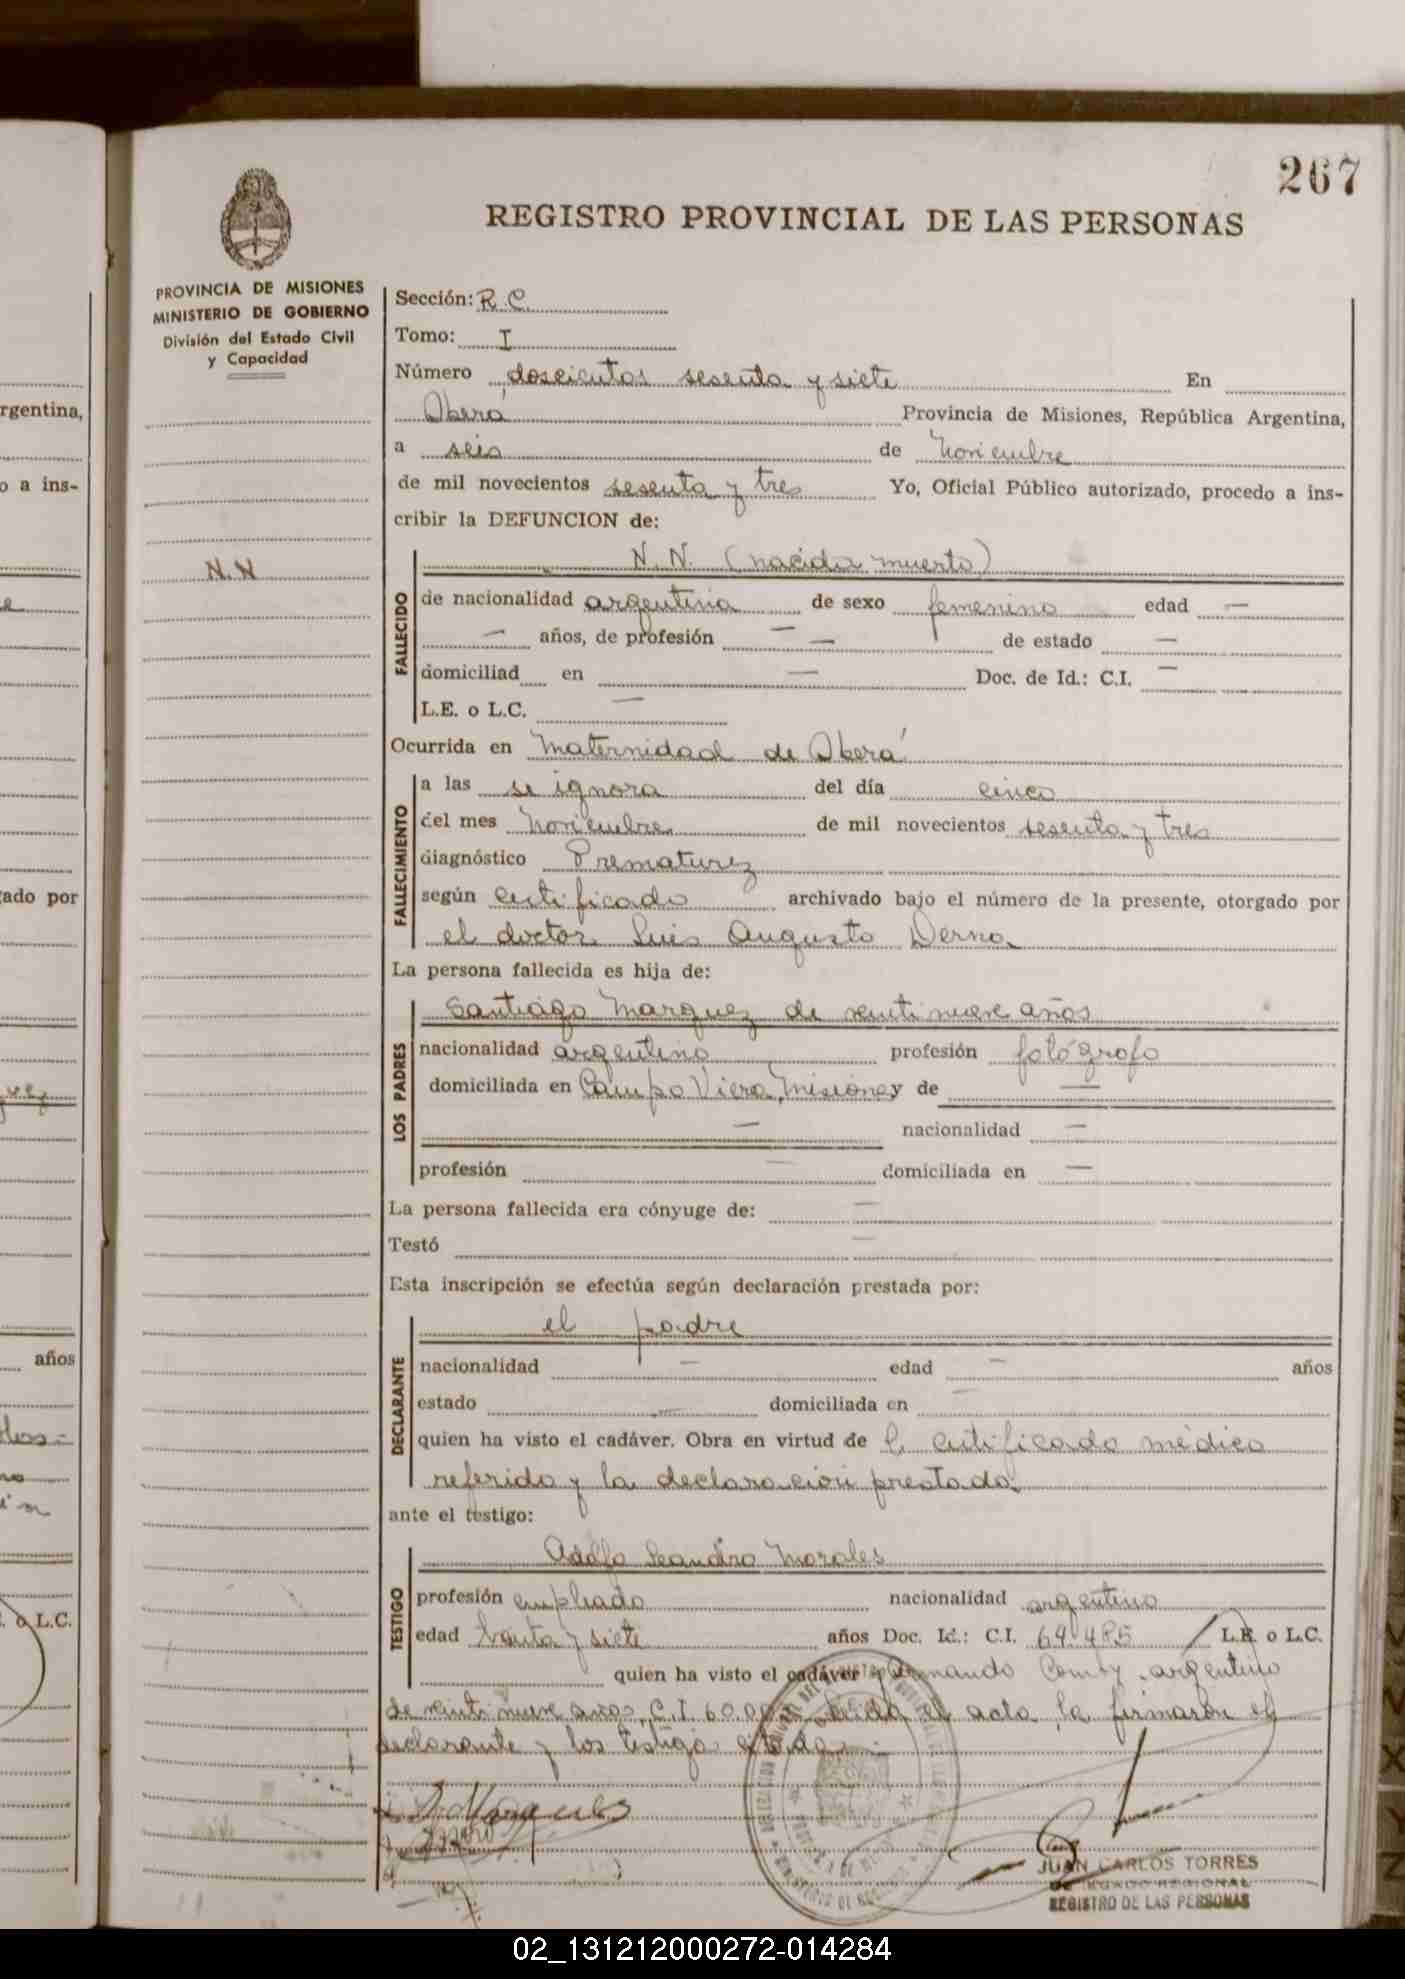 267
REGISTRO PROVINCIAL DE LAS PERSONAS
PROVINCIA DE MISIONES
MINISTERIO DE GOBIERNO
División del Estado Civil
y Capacidad
Sección: R.C.
Tomo: I
Número doscientos sesenta y siete En
Oberá Provincia de Misiones, República Argentina,
a seis de Noviembre
de mil novecientos sesenta y tres Yo, Oficial Público autorizado, procedo a ins-
cribir la DEFUNCION de:
N.N
N. N. (nacida muerta)
FALLECIDO
de nacionalidad argentina de sexo femenino edad —
— años, de profesión — — de estado —
domiciliad en — Doc. de Id.: C.I. —
L.E. o L.C. —
Ocurrida en Maternidad de Oberá
FALLECIMIENTO
a las se ignora del día cinco
del mes Noviembre de mil novecientos sesenta y tres
diagnóstico Prematurez
según certificado archivado bajo el número de la presente, otorgado por
el doctor Luis Augusto Derna
La persona fallecida es hija de:
LOS PADRES
Santiago Marquez de veinti nueve años
nacionalidad argentino profesión fotógrafo
domiciliada en Campo Viera, Misiones y de —
— nacionalidad —
profesión — domiciliada en —
La persona fallecida era cónyuge de: —
Testó —
Esta inscripción se efectúa según declaración prestada por:
DECLARANTE
el padre
nacionalidad — edad — años
estado — domiciliada en —
quien ha visto el cadáver. Obra en virtud de l certificado médico
referido y la declaración prestada.
ante el testigo:
TESTIGO
Adolfo Leandro Morales
profesión empleado nacionalidad argentino
edad treinta y siete años Doc. Id.: C.I. 64.485 L.E. o L.C.
quien ha visto el cadáver y argentino
de veinti nueve años, C.I. leida el acta, la firmaron el
declarante y los testigo
JUAN CARLOS TORRES
DELEGADO REGIONAL
REGISTRO DE LAS PERSONAS
rgentina,
o a ins-
gado por
años
o L.C.
02_131212000272-014284